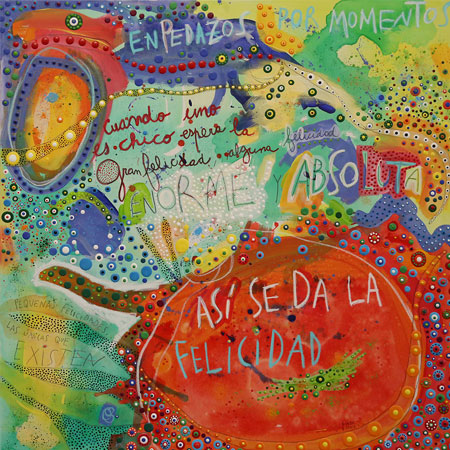 EN PEDAZOS POR MOMENTOS
cuando uno
es chico espera la
Gran felicidad alguna felicidad
ENORME Y ABSOLUTA
ASÍ SE DA LA
FELICIDAD
PEQUEÑAS
LAS UNICAS QUE
EXISTEN